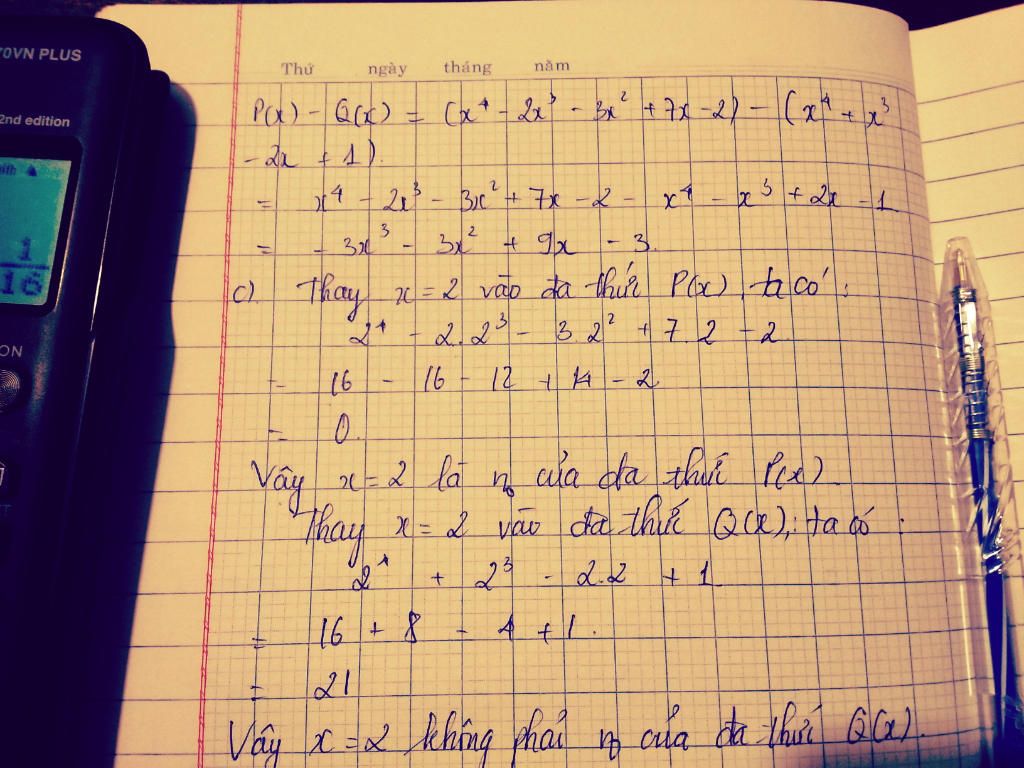 70VN PLUS
2nd edition
Math ▲
1
16
ON
Thứ ngày tháng năm
P(x) - Q(x) = (x⁴ - 2x³ - 3x² + 7x - 2) - (x⁴ + x³
- 2x + 1).
= x⁴ - 2x³ - 3x² + 7x - 2 - x⁴ - x³ + 2x - 1
= - 3x³ - 3x² + 9x - 3.
c). Thay x = 2 vào đa thức P(x), ta có:
2⁴ - 2.2³ - 3.2² + 7.2 - 2
= 16 - 16 - 12 + 14 - 2
= 0.
Vậy x = 2 là nₒ của đa thức P(x)
Thay x = 2 vào đa thức Q(x), ta có:
2⁴ + 2³ - 2.2 + 1
= 16 + 8 - 4 + 1.
= 21
Vậy x = 2 không phải nₒ của đa thức Q(x).